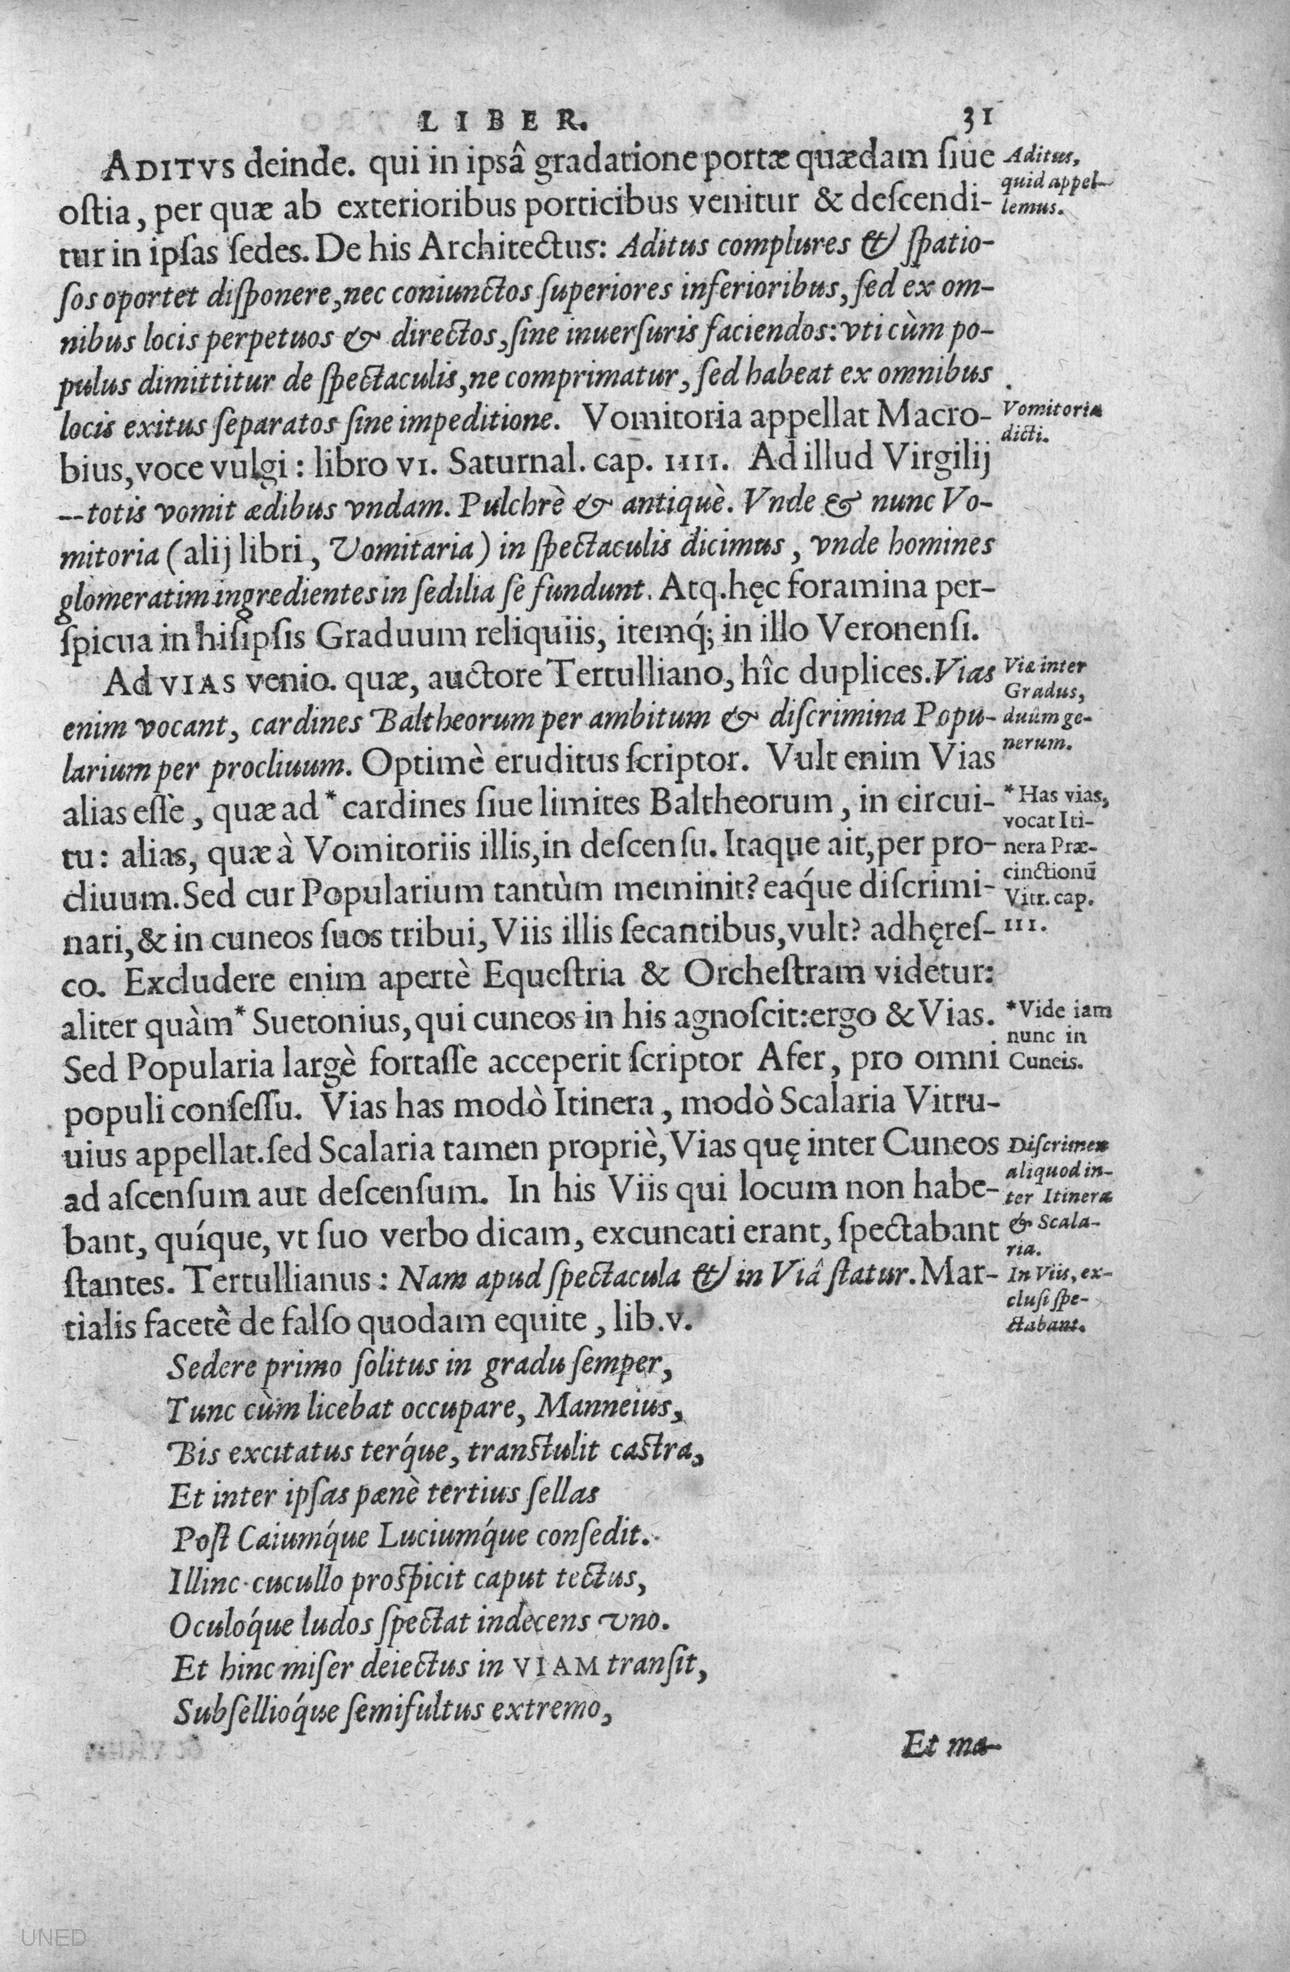 LIBER. 31
ADITVS deinde. qui in ipsâ gradatione portæ quædam siue
ostia, per quæ ab exterioribus porticibus venitur & descendi-
tur in ipsas sedes. De his Architectus: Aditus complures & spatio-
sos oportet disponere, nec coniunctos superiores inferioribus, sed ex om-
nibus locis perpetuos & directos, sine inuersuris faciendos: vti cùm po-
pulus dimittitur de spectaculis, ne comprimatur, sed habeat ex omnibus
locis exitus separatos sine impeditione. Vomitoria appellat Macro-
bius, voce vulgi: libro VI. Saturnal. cap. IIII. Ad illud Virgilij
--totis vomit ædibus vndam. Pulchrè & antiquè. Vnde & nunc Vo-
mitoria (alij libri, Vomitaria) in spectaculis dicimus, vnde homines
glomeratim ingredientes in sedilia se fundunt. Atq. hęc foramina per-
spicua in hisipsis Graduum reliquiis, itemq́; in illo Veronensi.
Ad VIAS venio. quæ, auctore Tertulliano, hîc duplices. Vias
enim vocant, cardines Baltheorum per ambitum & discrimina Popu-
larium per procliuum. Optimè eruditus scriptor. Vult enim Vias
alias esse, quæ ad * cardines siue limites Baltheorum, in circui-
tu: alias, quæ à Vomitoriis illis, in descensu. Itaque ait, per pro-
cliuum. Sed cur Popularium tantùm meminit? eaq́ue discrimi-
nari, & in cuneos suos tribui, Viis illis secantibus, vult? adhęres-
co. Excludere enim apertè Equestria & Orchestram videtur:
aliter quàm * Suetonius, qui cuneos in his agnoscit: ergo & Vias.
Sed Popularia largè fortasse acceperit scriptor Afer, pro omni
populi consessu. Vias has modò Itinera, modò Scalaria Vitru-
uius appellat. sed Scalaria tamen propriè, Vias quę inter Cuneos
ad ascensum aut descensum. In his Viis qui locum non habe-
bant, quíque, vt suo verbo dicam, excuneati erant, spectabant
stantes. Tertullianus: Nam apud spectacula & in Viâ statur. Mar-
tialis facetè de falso quodam equite, lib. v.
Sedere primo solitus in gradu semper,
Tunc cùm licebat occupare, Manneius,
Bis excitatus terq́ue, transtulit castra,
Et inter ipsas pænè tertius sellas
Post Caiumq́ue Luciumq́ue consedit.
Illinc cucullo prospicit caput tectus,
Oculoq́ue ludos spectat indecens vno.
Et hinc miser deiectus in VIAM transit,
Subsellioq́ue semifultus extremo,
Et ma-
Aditus,
quid appel-
lemus.
Vomitoria
dicti.
Viæ inter
Gradus,
duûm ge-
nerum.
* Has vias,
vocat Iti-
nera Præ-
cinctionū
Vitr. cap.
III.
* Vide iam
nunc in
Cuneis.
Discrimen
aliquod in-
ter Itinera
& Scala-
ria.
In Viis, ex-
clusi spe-
ctabant.
UNED